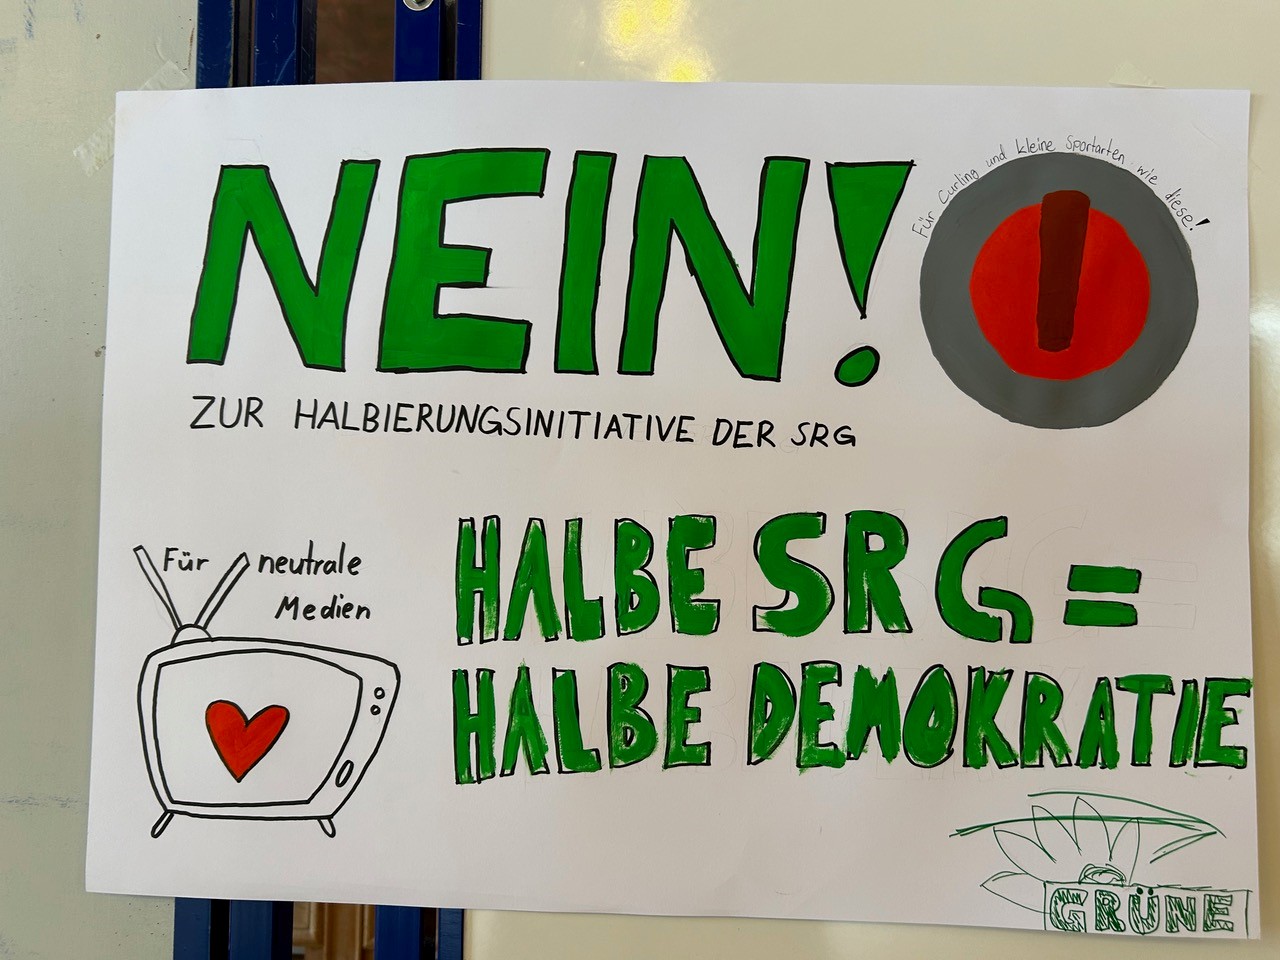 NEIN!
Für Curling und kleine Sportarten wie diese!
ZUR HALBIERUNGSINITIATIVE DER SRG
Für neutrale
Medien
HALBE SRG =
HALBE DEMOKRATIE
GRÜNE